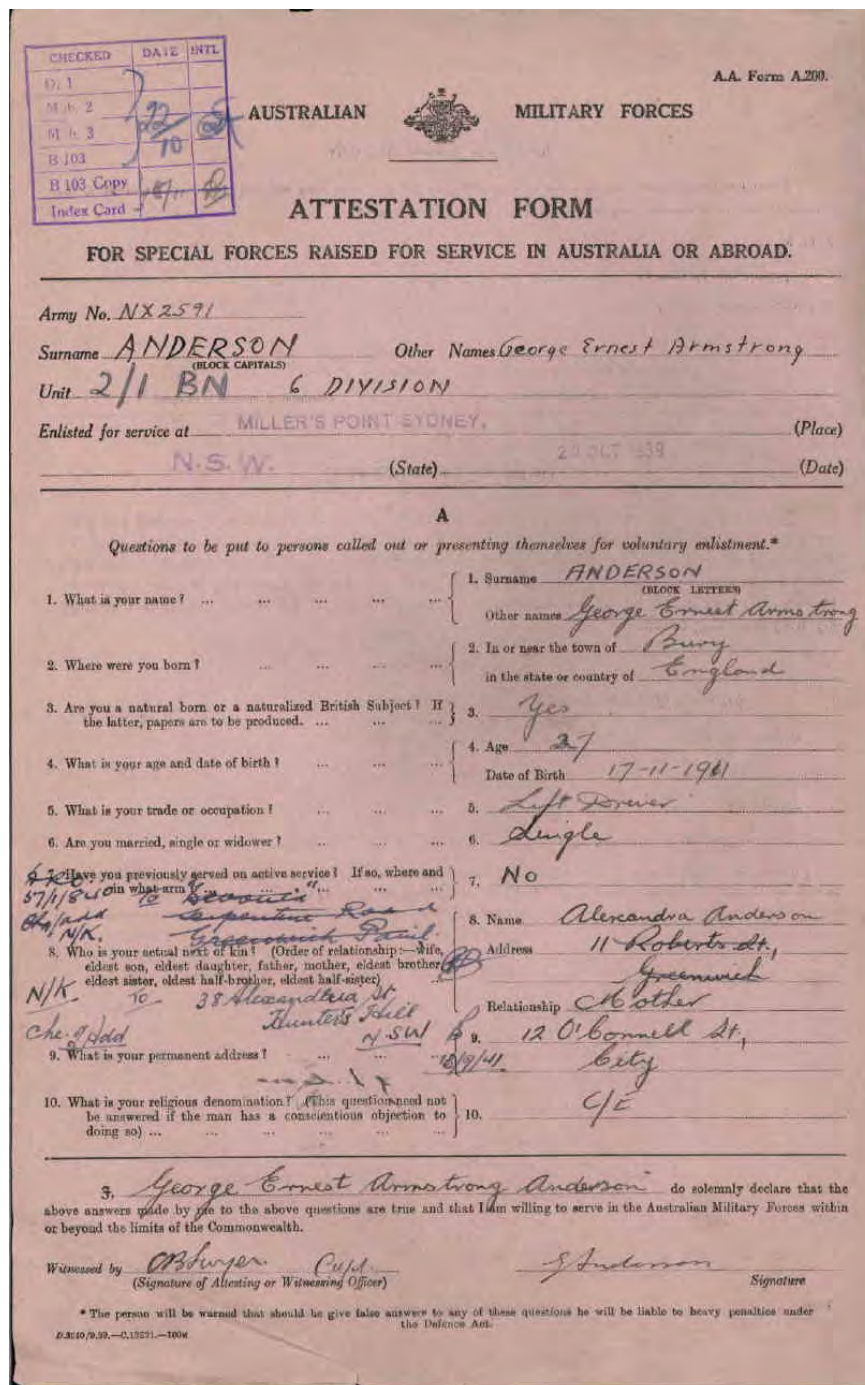 CHECKED DATE INTL
D. 1
M.h. 2
M.h. 3
B 103
B 103 Copy
Index Card
22/10
A.A. Form A.200.
AUSTRALIAN MILITARY FORCES
ATTESTATION FORM
FOR SPECIAL FORCES RAISED FOR SERVICE IN AUSTRALIA OR ABROAD.
Army No. NX2591
Surname ANDERSON Other Names George Ernest Armstrong
(BLOCK CAPITALS)
Unit 2/1 BN 6 DIVISION
Enlisted for service at MILLER'S POINT SYDNEY. (Place)
N.S.W. (State) OCT 1939 (Date)
A
Questions to be put to persons called out or presenting themselves for voluntary enlistment.*
1. What is your name? ... ... ... ... ...
1. Surname ANDERSON
(BLOCK LETTERS)
Other names George Ernest Armstrong
2. Where were you born? ... ... ...
2. In or near the town of Bury
in the state or country of England
3. Are you a natural born or a naturalized British Subject? If
the latter, papers are to be produced. ... ... ...
3. Yes
4. What is your age and date of birth? ... ... ...
4. Age 27
Date of Birth 17-11-1911
5. What is your trade or occupation? ... ... ...
5. Lift Driver
6. Are you married, single or widower? .. ... ...
6. Single
7. Have you previously served on active service? If so, where and
in what arm? ... ... ... ...
7. No
Chg/add
N/K.
Serpentine Road
Greenwich
8. Who is your actual next of kin? (Order of relationship:—wife,
eldest son, eldest daughter, father, mother, eldest brother,
eldest sister, eldest half-brother, eldest half-sister)
8. Name Alexandra Anderson
Address 11 Roberts St.,
Greenwich
Relationship Mother
N/K To 38 Alexandria St
Hunters Hill
Che. of Add N.SW
9. What is your permanent address? ... ... ...
9. 12 O'Connell St.,
City
/9/41
10. What is your religious denomination? (This question need not
be answered if the man has a conscientious objection to
doing so) ... ... ... ... ...
10. C/E
I, George Ernest Armstrong Anderson do solemnly declare that the
above answers made by me to the above questions are true and that I am willing to serve in the Australian Military Forces within
or beyond the limits of the Commonwealth.
Witnessed by Capt. G Anderson
(Signature of Attesting or Witnessing Officer) Signature
* The person will be warned that should he give false answers to any of these questions he will be liable to heavy penalties under
the Defence Act.